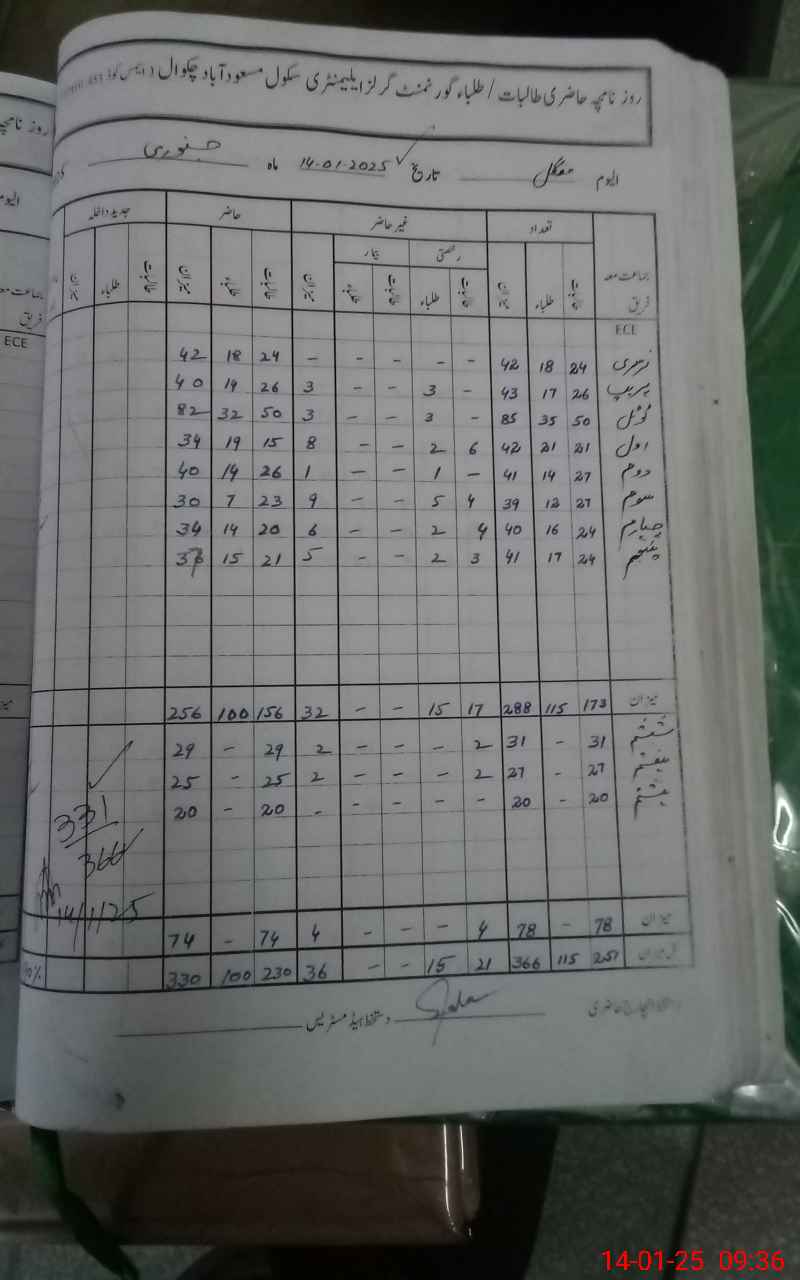 روز نامچہ حاضری طالبات / طلباء گورنمنٹ گرلز ایلیمنٹری سکول مسعود آباد چکوال
الیوم منگل تاریخ 14-01-2025 ماہ جنوری
جماعت معہ فریق تعداد غیر حاضر حاضر جدید داخلہ
رخصتی بیمار
طالبات طلباء میزان طالبات طلباء طالبات طلباء میزان طالبات طلباء میزان طالبات طلباء میزان
ECE
نرسری 24 18 42 - - - - - 24 18 42
پریپ 26 17 43 - 3 - - 3 26 14 40
ٹوٹل 50 35 85 - 3 - - 3 50 32 82
اول 21 21 42 6 2 - - 8 15 19 34
دوم 27 14 41 - 1 - - 1 26 14 40
سوم 27 12 39 4 5 - - 9 23 7 30
چہارم 24 16 40 4 2 - - 6 20 14 34
پنجم 24 17 41 3 2 - - 5 21 15 36
میزان 173 115 288 17 15 - - 32 156 100 256
ششم 31 - 31 2 - - - 2 29 - 29
ہفتم 27 - 27 2 - - - 2 25 - 25
ہشتم 20 - 20 - - - - - 20 - 20
331
366
14/1/25
میزان 78 - 78 4 - - - 4 74 - 74
کل میزان 251 115 366 21 15 - - 36 230 100 330
دستخط انچارج حاضری دستخط ہیڈ مسٹریس
روز نامچہ
الیوم
جماعت معہ
فریق
ECE
14-01-25 09:36